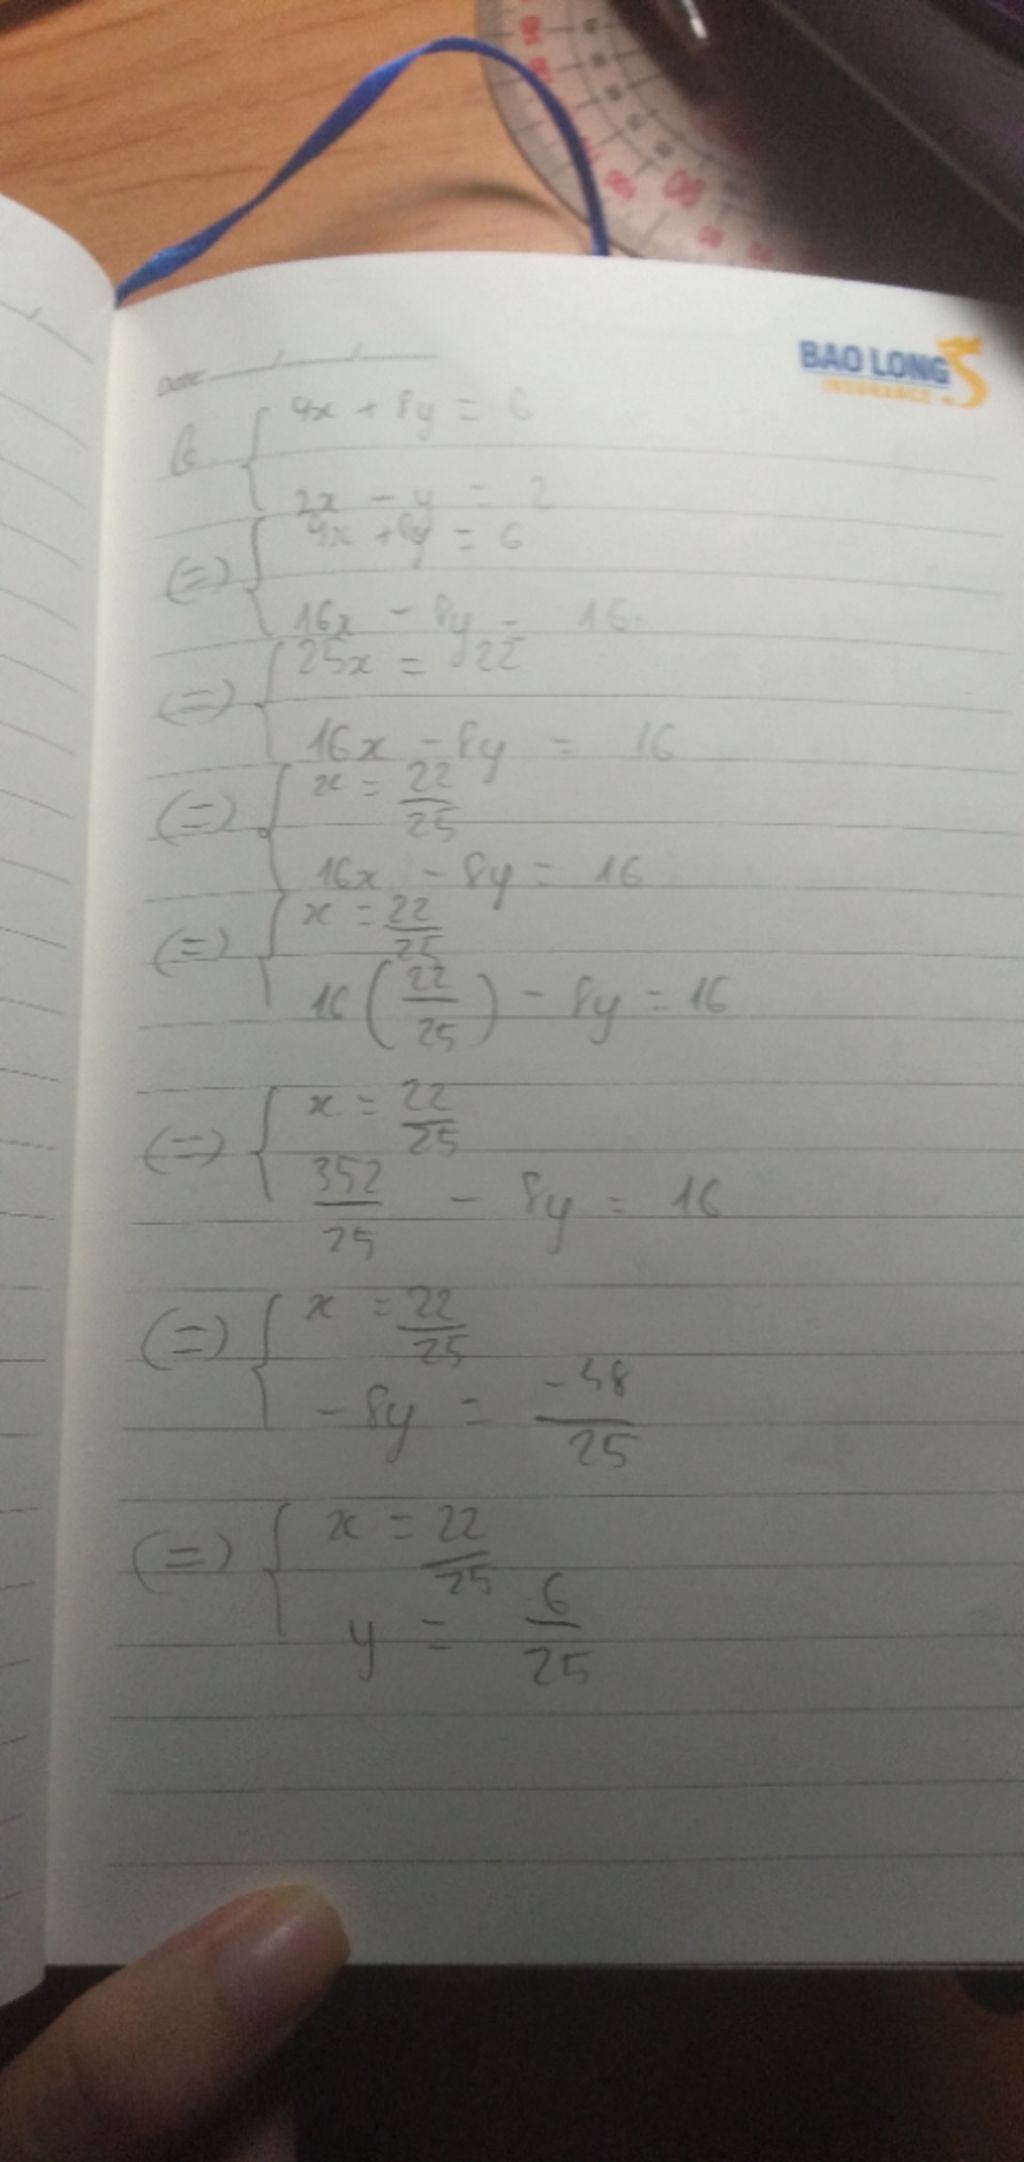 Date
BAO LONG
INSURANCE
b. { 9x + 8y = 6
2x - y = 2
(=) { 9x + 8y = 6
16x - 8y = 16
(=) { 25x = 22
16x - 8y = 16
(=) { x = 22/25
16x - 8y = 16
(=) { x = 22/25
16 (22/25) - 8y = 16
(=) { x = 22/25
352/25 - 8y = 16
(=) { x = 22/25
- 8y = -48/25
(=) { x = 22/25
y = 6/25